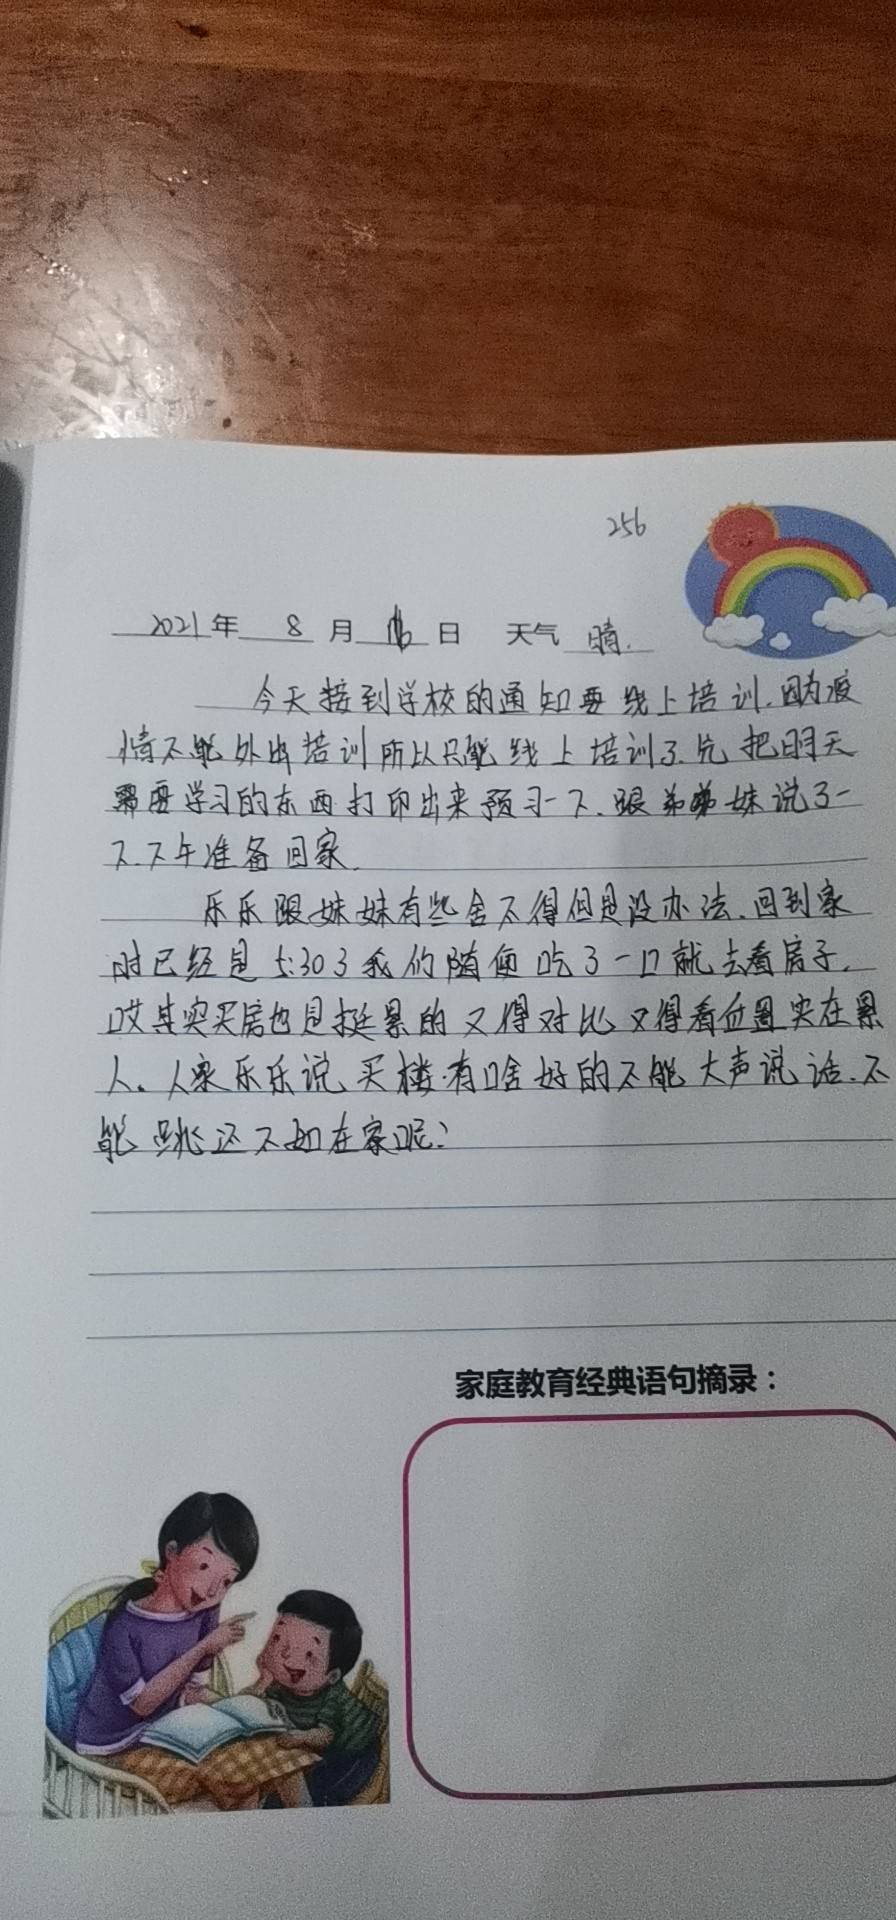 256
2021年 8月16日 天气 晴.
今天接到学校的通知要线上培训.因为疫
情不能外出培训所以只能线上培训了.先把明天
需要学习的东西打印出来预习一下.跟弟弟妹说了一
下.下午准备回家.
乐乐跟妹妹有些舍不得但是没办法.回到家
时已经是5:30了我们随便吃了一口就去看房子.
哎其实买房也是挺累的又得对比又得看位置实在累
人。人家乐乐说买楼有啥好的不能大声说话.不
能跳还不如在家呢?
家庭教育经典语句摘录：